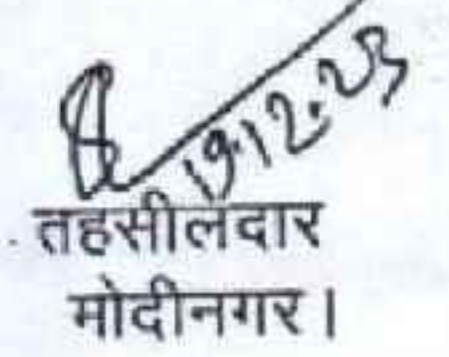 19.12.23
तहसीलदार
मोदीनगर।